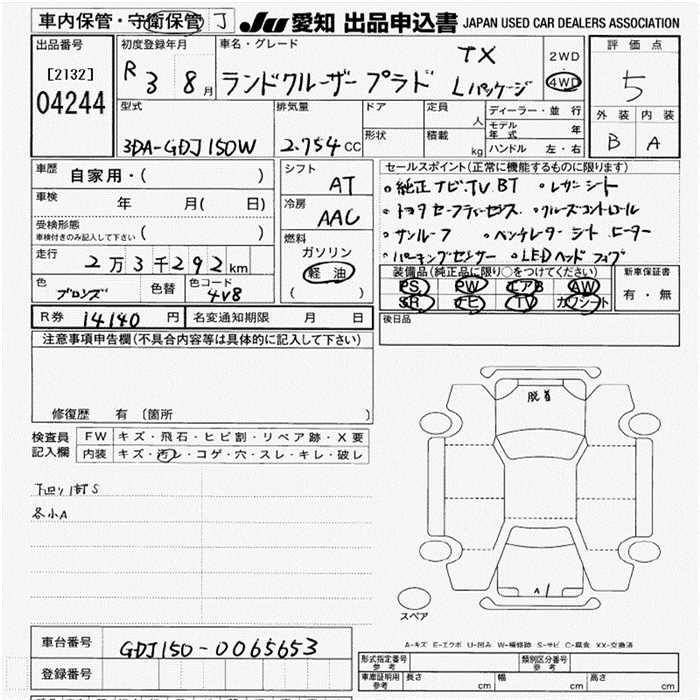 車内保管・守衛保管 J
JU 愛知 出品申込書 JAPAN USED CAR DEALERS ASSOCIATION
出品番号
[2132]
04244
初度登録年月
R 3 8月
車名・グレード
TX
ランドクルーザープラド Lパッケージ
2WD
4WD
評価点
5
外装 内装
B A
型式
3DA-GDJ150W
排気量
2.754cc
ドア
形状
定員 人
積載 kg
ディーラー・並行
モデル年式 年
ハンドル 左・右
車歴
自家用・( )
車検
年 月( 日)
受検形態
車検付きのみ記入して下さい ( )
走行
2万3千292km
色
ブロンズ
色替
色コード
4V8
シフト
AT
冷房
AAC
燃料
ガソリン
軽油
( )
セールスポイント(正常に機能するものに限ります)
・純正ナビ.TV.BT ・レザーシート
・トヨタセーフティーセンス. ・クルーズコントロール
・サンルーフ ・ベンチレーターシートヒーター
・パーキングセンサー ・LEDヘッドフォグ
装備品(純正品に限り○をつけてください)
PS PW エアB AW
SR ナビ TV カワシート
新車保証書
有・無
後日品
R券 14140 円
名変通知期限 月 日
注意事項申告欄(不具合内容等は具体的に記入して下さい)
修復歴 有 〔箇所 〕
検査員
記入欄
FW キズ・飛石・ヒビ割・リペア跡・X要
内装 キズ・汚レ・コゲ・穴・スレ・キレ・破レ
下回り S
各小A
脱着
A1
スペア
A-キズ E-エクボ U-凹み W-補修跡 S-サビ C-腐食 XX-交換済
車台番号
GDJ150-0065653
登録番号
形式指定番号
参考
類別区分番号
参考
車庫証明用
参考
長さ cm 幅 cm 高さ cm